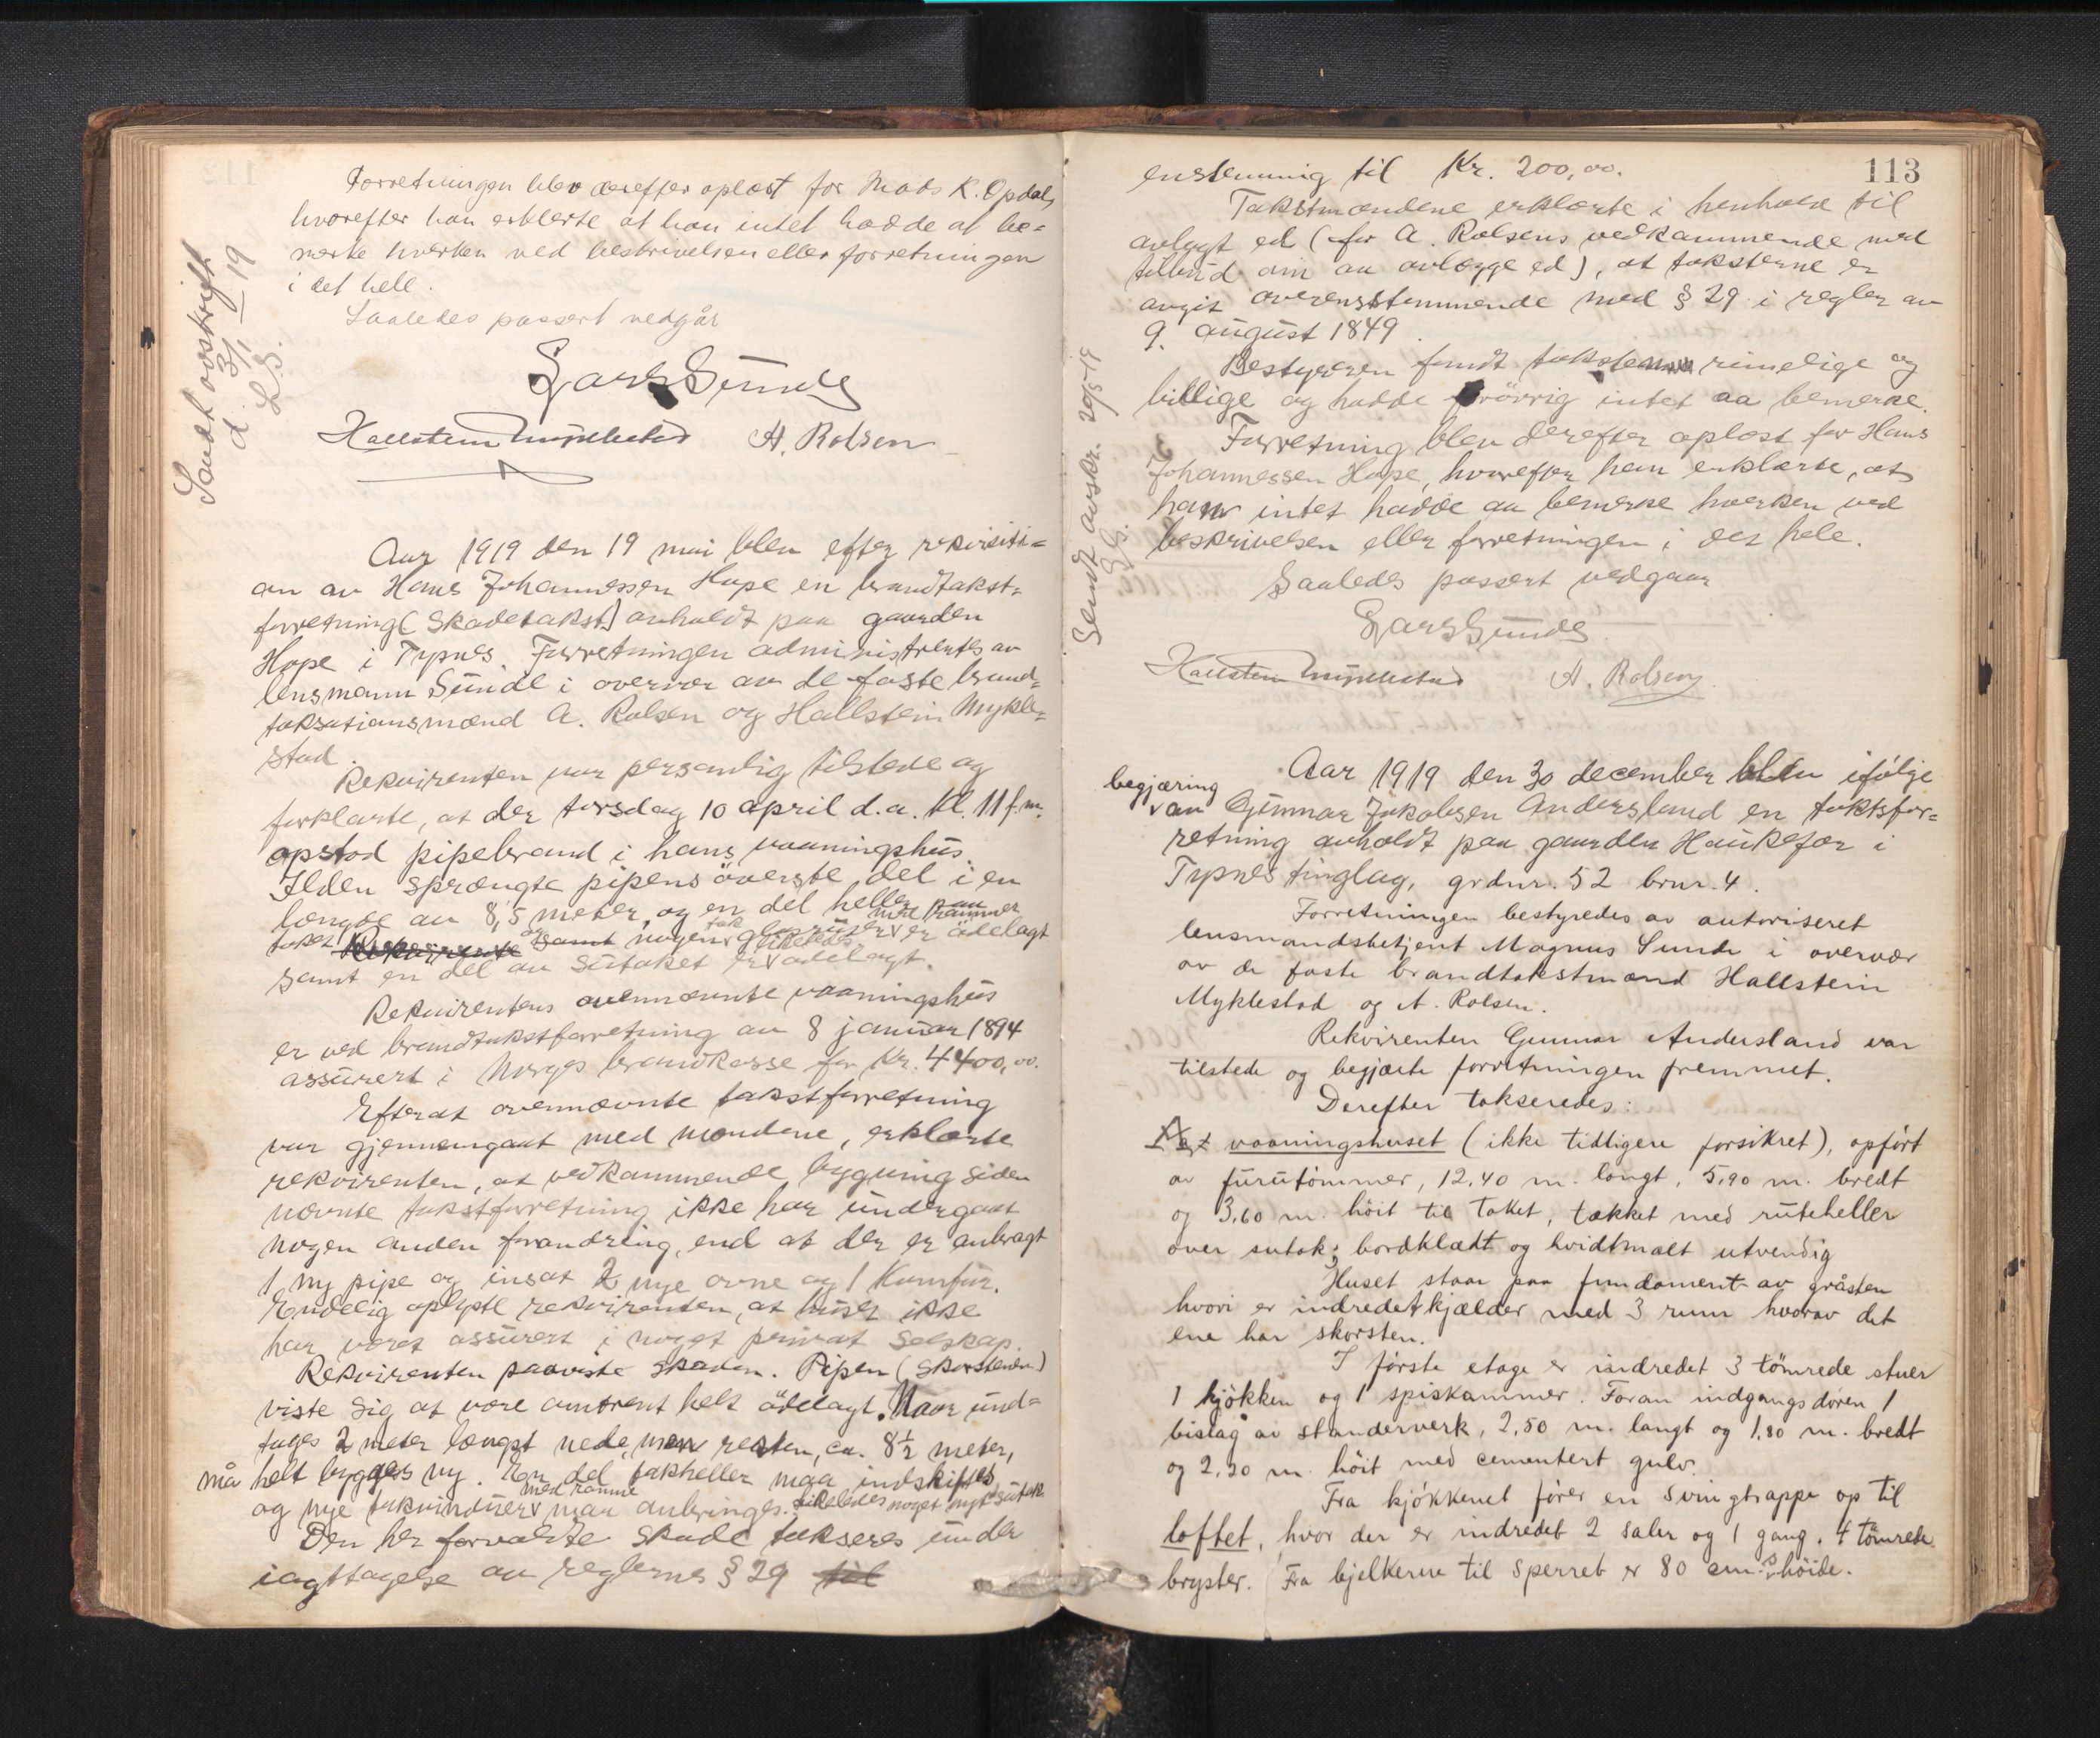 Forretningen blev derefter oplæst for Mads K. Opdal,
hvorefter han erklerte at han intet hadde at be=
merke hverken ved beskrivelsen eller forretningen
i det hele.
Saaledes passert vedgår
Lars Sunde
Hallstein Myklestad A. Rolsen
Sendt avskrift
d. 3/1 19
L.S.
Aar 1919 den 19 mai blev efter rekvisiti=
on av Hans Johannessen Hope en brandtakst=
forretning (skadetakst) avholdt paa gaarden
Hope i Tysnes. Forretningen administrertes av
lensmann Sunde i overvær av de faste brand=
taksationsmænd A. Rolsen og Hallstein Mykle=
stad.
Rekvirenten var personlig tilstede og
forklarte, at der torsdag 10 april d.a. kl. 11 f.m.
opstod pipebrand i hans vaaningshus.
Ilden sprængte pipens överste del i en
længde av 8,5 meter, og en del heller paa
taket og nogen tak glasruter med rammer er ödelagt
samt en del av sutaket er likeledes ödelagt.
Rekvirentens ovennævnte vaaningshus
er ved brandtakstforretning av 8 januar 1894
assurert i Norges brandkasse for Kr. 4400,00.
Efterat ovennævnte takstforretning
var gjennemgaat med mændene, erklærte
rekvirenten, at vedkommende bygning siden
nævnte takstforretning ikke har undergaat
nogen anden forandring, end at der er anbragt
1 ny pipe og insat 2 nye ovne og 1 Komfur.
Endelig oplyste rekvirenten, at huset ikke
har været assurert i noget privat selskap.
Rekvirenten paaviste skaden. Pipen (Skorstenen)
viste sig at være omtrent helt ödelagt. Naar und=
tages 2 meter længst nede, men resten, ca. 8½ meter,
må helt bygges ny. En del takheller maa indskiftes
og nye takvinduer med ramme maa anbringes. Likeledes noget nyt sutak
Den her forvoldte skade takseres under
iagttagelse av reglernes § 29 til
113
enstemmig til Kr. 200,00.
Takstmændene erklærte i henhold til
avlagt ed (for A. Rolsens vedkommende med
tilbud om aa avlægge ed), at taksterne er
avgit overensstemmende med § 29 i regler av
9. august 1849.
Bestyreren fandt taksten rimelige og
billige og hadde forövrig intet aa bemerke.
Forretning blev derefter oplæst for Hans
Johannessen Hope, hvorefter han erklærte, at
han intet hadde aa bemerke hverken ved
beskrivelsen eller forretningen i det hele.
Saaledes passert vedgaar
Lars Sunde
Hallstein Myklestad A. Rolsen
Sendt avskr. 20/5-19
L.S.
Aar 1919 den 30 december blev ifölge
begjæring
av Gunnar Jakobsen Andersland en takstfor=
retning avholdt paa gaarden Haukefær i
Tysnes tinglag, grdnr. 52 brnr. 4.
Forretningen bestyredes av autoriseret
lensmandsbetjent Magnus Sunde i overvær
av de faste brandtakstmænd Hallstein
Myklestad og A. Rolsen.
Rekvirenten Gunnar Andersland var
tilstede og begjærte forretningen fremmet.
Derefter takseredes:
vaaningshuset (ikke tidligere forsikret), opfört
av furutömmer, 12,40 m. langt, 5,90 m. bredt
og 3,60 m. höit til taket, tækket med ruteheller
over sutak; bordklædt og hvidtmalt utvendig
Huset staar paa fundament av gråsten
hvori er indredet kjælder med 3 rum hvorav det
ene har skorsten.
I förste etage er indredet 3 tömrede stuer
1 kjökken og 1 spiskammer. Foran indgangsdören 1
bislag av standerverk, 2,50 m. langt og 1,80 m. bredt
og 2,20 m. höit med cementert gulv.
Fra kjökkenet förer en svingtrappe op til
loftet, hvor der er indredet 2 saler og 1 gang. 4 tömrede
bryster. Fra bjelkerne til sperret er 80 cm.s höide.